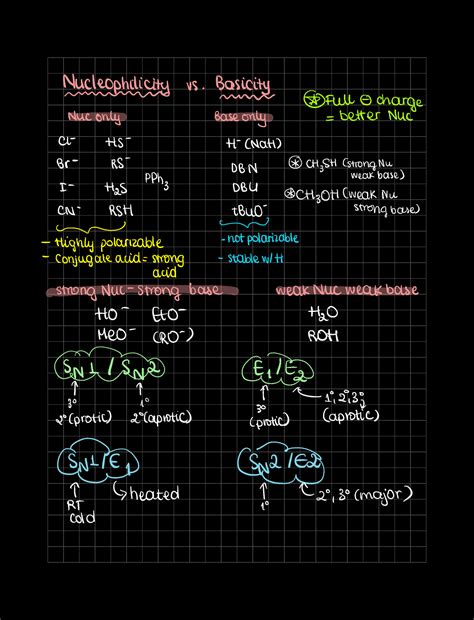 Nucleophilicity vs. Basicity
⊛ Full ⊖ charge
= better Nuc
Nuc only
Cl⁻ HS⁻
Br⁻ RS⁻
I⁻ H₂S
PPh₃
CN⁻ RSH
- Highly polarizable
- Conjugate acid = strong
acid
Base only
H⁻ (NaH)
DBN
DBU
tBuO⁻
- not polarizable
- stable w/ H
⊛ CH₃SH (strong Nu
weak base)
⊛ CH₃OH (weak Nu
strong base)
strong Nuc - strong base
HO⁻ EtO⁻
MeO⁻ (RO⁻)
weak Nuc weak base
H₂O
ROH
SN1 / SN2
3° 1°
2° (protic) 2° (aprotic)
E1 / E2
3°
(protic)
1°, 2°, 3°
(aprotic)
SN1 / E1
RT
cold
heated
SN2 / E2
1°
2°, 3° (major)